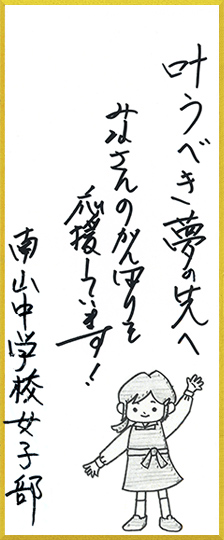 叶うべき夢の先へ
みなさんのがんばりを
応援しています!
南山中学校女子部